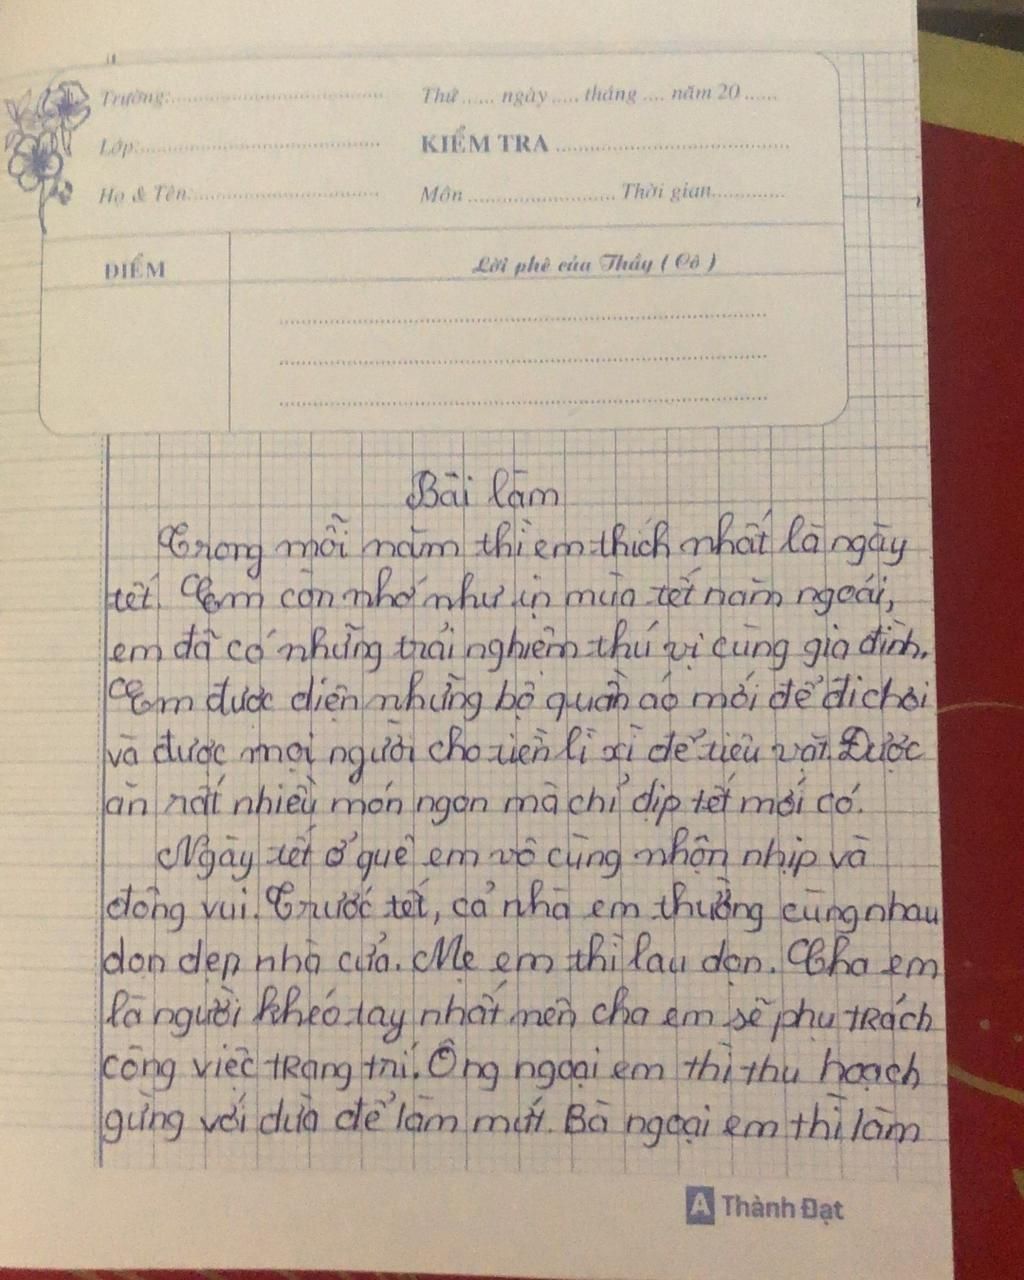 Trường:
Thứ ...... ngày ..... tháng .... năm 20 ......
Lớp:
KIỂM TRA
Họ & Tên:
Môn ........................ Thời gian
ĐIỂM
Lời phê của Thầy ( Cô )
Bài làm
Trong mỗi năm thì em thích nhất là ngày
tết. Em còn nhớ như in mùa tết năm ngoái,
em đã có những trải nghiệm thú vị cùng gia đình.
Em được diện những bộ quần áo mới để đi chơi
và được mọi người cho tiền lì xì để tiêu vặt. Được
ăn rất nhiều món ngon mà chỉ dịp tết mới có.
Ngày tết ở quê em vô cùng nhộn nhịp và
đông vui. Trước tết, cả nhà em thường cùng nhau
dọn dẹp nhà cửa. Mẹ em thì lau dọn. Cha em
là người khéo tay nhất nên cha em sẽ phụ trách
công việc trang trí. Ông ngoại em thì thu hoạch
gừng với dừa để làm mứt. Bà ngoại em thì làm
A Thành Đạt